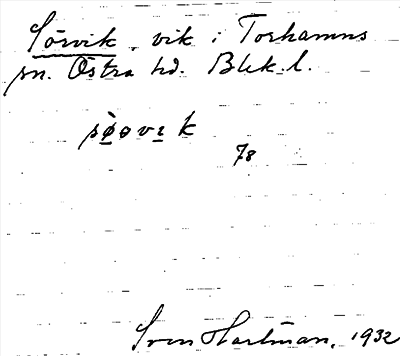 Sörvik, vik i Torhamns
sn. Östra hd. Blek. l.
sø̀ǝvɪk
78
Sven Hartman, 1932